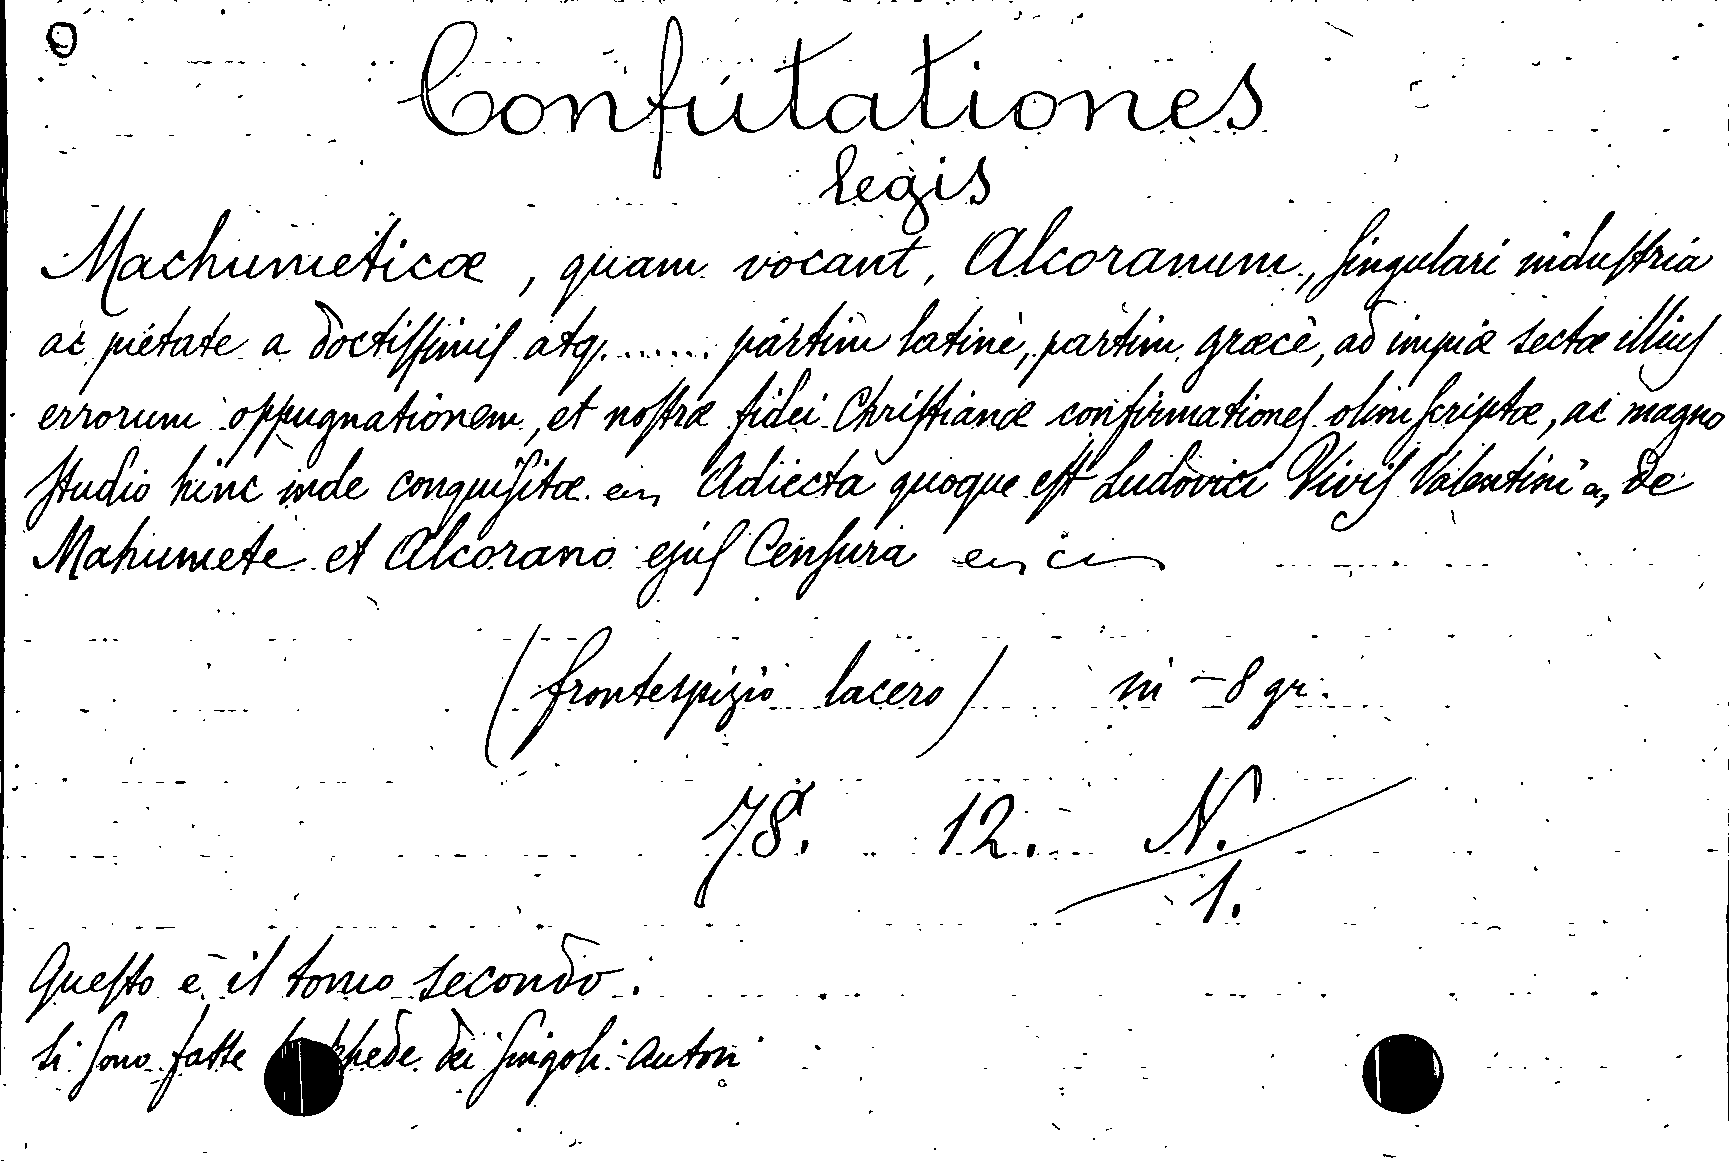 Confutationes
legis
Machumeticæ, quam vocant, Alcoranum, singulari industria
ac pietate a doctissimis atq. ...... partim latinè, partim græcè, ad impiæ sectæ illius
errorum oppugnationem, et nostræ fidei Christianæ confirmationes olim scriptæ, ac magno
studio hinc inde conquisitæ. Adiecta quoque est Ludovici Vivis Valentini, De
Mahumete et Alcorano ejus Censura
(frontespizio lacero) in-8 gr.
78. 12. N.
1.
Questo è il tomo secondo.
Si sono fatte schede dei singoli autori